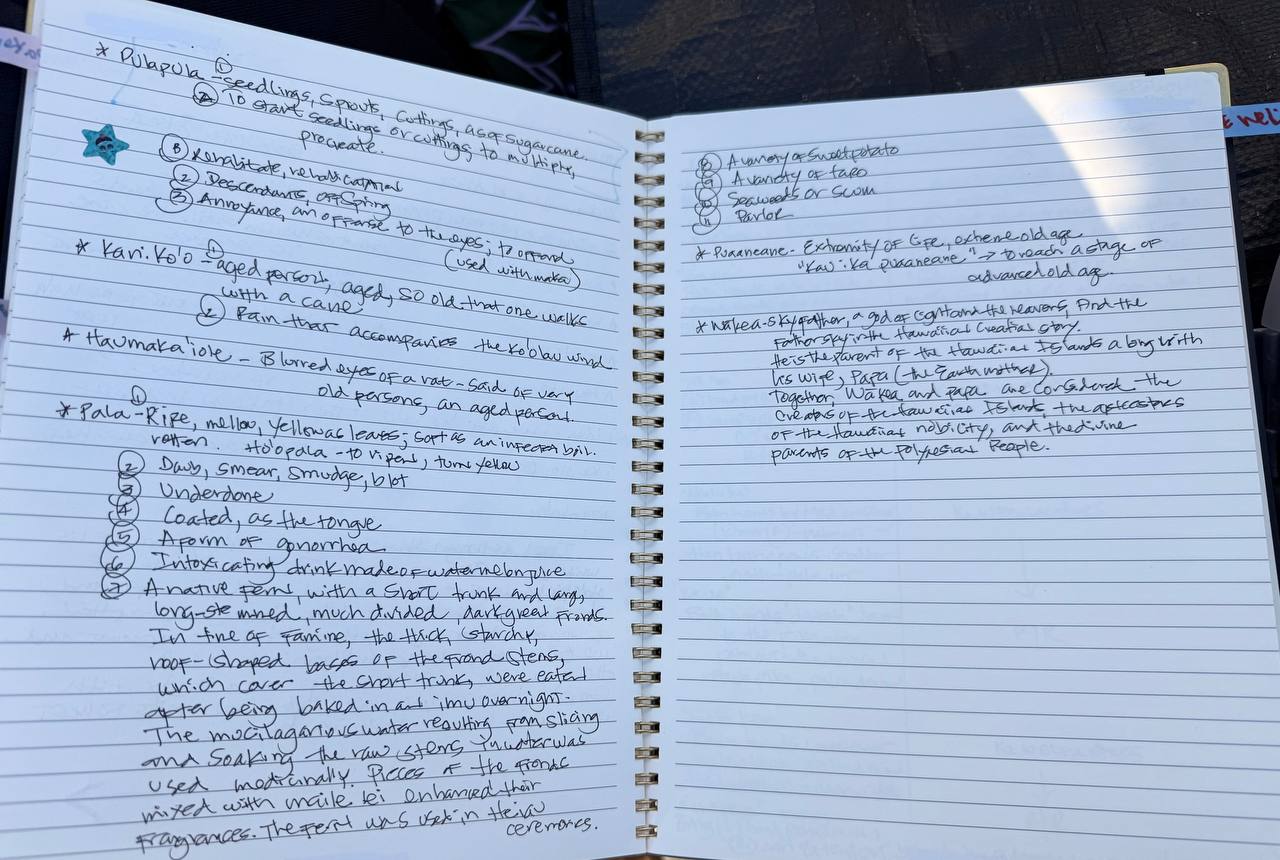 * Pulapula - ① seedlings, sprouts, cuttings, as of sugarcane.
② To start seedlings or cuttings; to multiply,
procreate.
Ⓑ Rehabilitate, rehabilitation
② Descendants, offspring
③ Annoyance, an offense to the eyes; to offend
(used with maka)
* Kani.Ko'o - ① aged person, aged, so old that one walks
with a cane
② Rain that accompanies the ko'olau wind
* Haumaka'iole - Blurred eyes of a rat - said of very
old persons, an aged person.
* Pala - ① Ripe, mellow, yellow as leaves; soft as an infected boil.
rotten. Ho'opala - to ripen, turn yellow
② Daub, smear, smudge, blot
③ Underdone
④ Coated, as the tongue
⑤ A form of gonorrhea
⑥ Intoxicating drink made of watermelon juice
⑦ A native fern, with a short trunk and large,
long-stemmed, much divided, dark green fronds.
In time of famine, the thick, starchy,
hoof-shaped bases of the frond stems,
which cover the short trunk, were eaten
after being baked in an imu overnight.
The mucilaginous water resulting from slicing
and soaking the raw stems in water was
used medicinally. Pieces of the fronds
mixed with maile lei enhanced their
fragrances. The fern was used in Heiau
ceremonies.
⑧ A variety of sweet potato
⑨ A variety of taro
⑩ Seaweeds or scum
⑪ Parlor
* Puaaneane - Extremity of life, extreme old age
"Kau i ka puaaneane" → to reach a stage of
advanced old age.
* Wakea - sky father, a god of light and the heavens, and the
Father sky in the Hawaiian Creation story.
He is the parent of the Hawaiian Islands along with
his wife, Papa (the Earth mother).
Together, Wakea and papa are considered the
creators of the Hawaiian Islands, the ancestors
of the Hawaiian nobility, and the divine
parents of the Polynesian People.